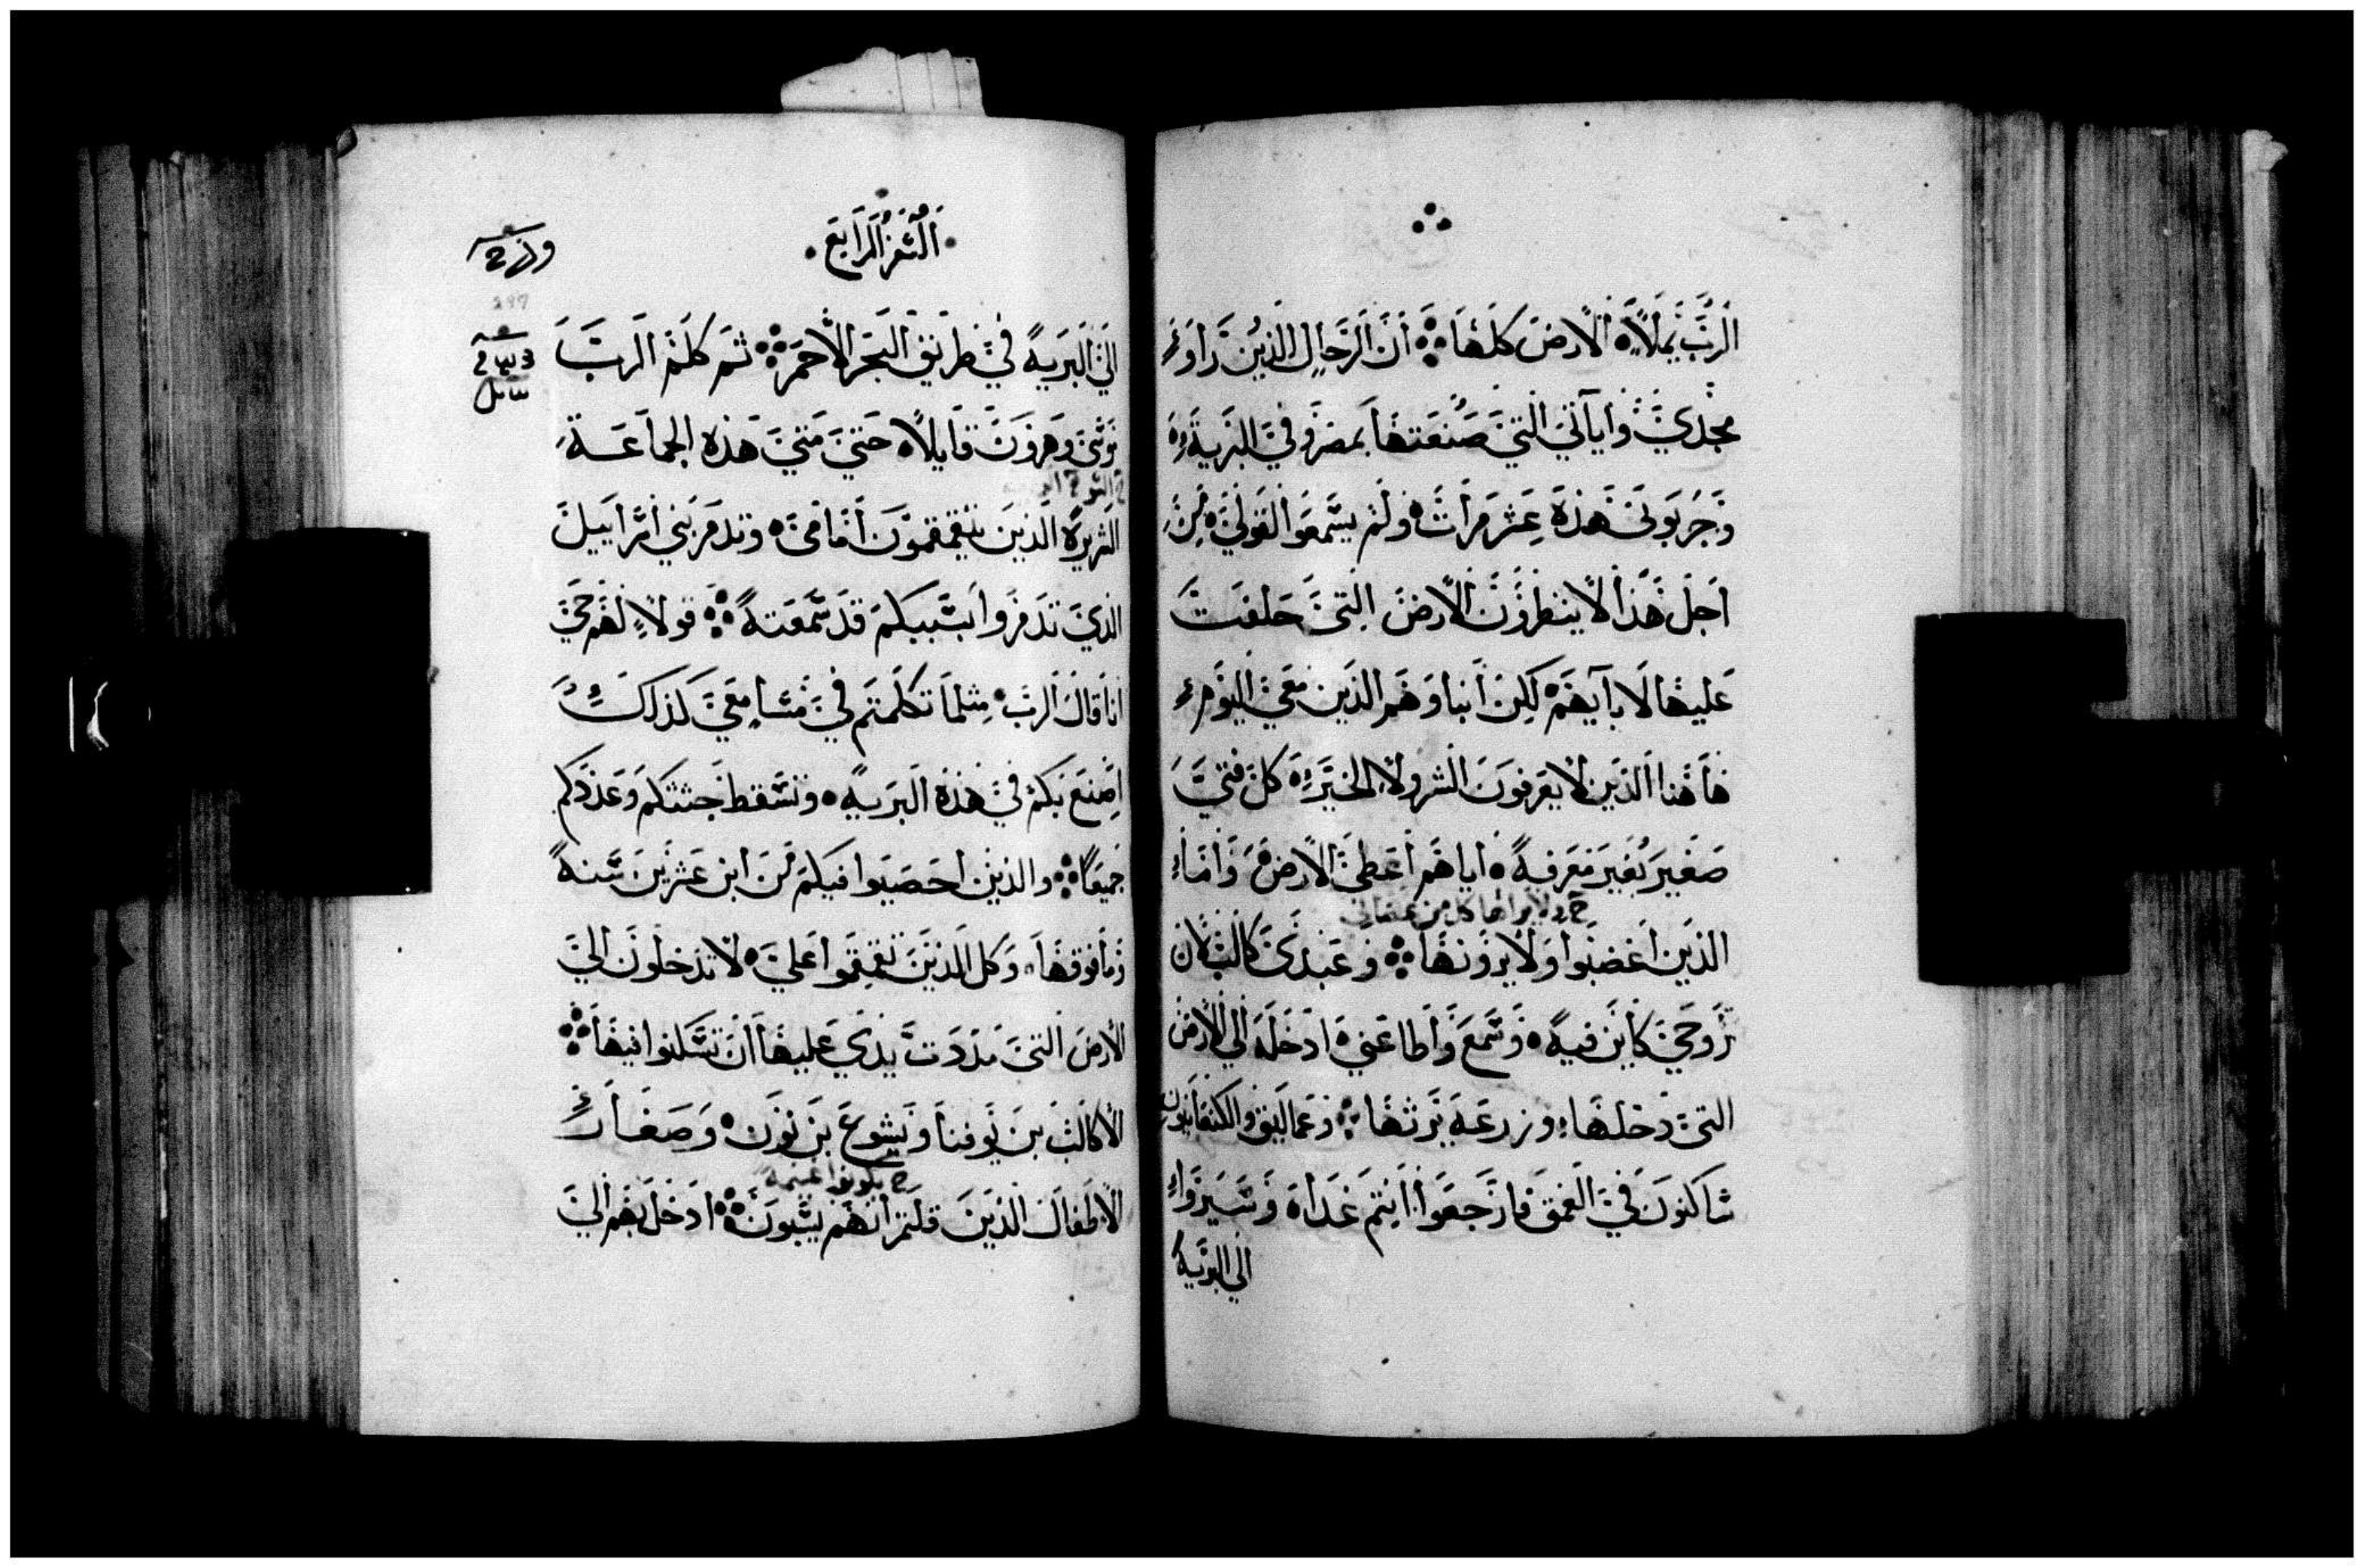 الرب يملأ الارض كلها ان الرجال الذين راوا
مجدي واياتي التي صنعتها بمصر وفي البرية
وجربوني هذه عشر مرات ولم يسمعوا لقولي من
اجل هذا لا ينظرون الارض التي حلفت
عليها لابآيهم لكن ابناوهم الذين معي اليوم
هاهنا الذين لا يعرفون الشر ولا الخير كل فتي
صغير بغير معرفة اياهم اعطي الارض واما
الذين اغضبوا ولا يرونها وعبدي كالب لان
روحي كاين فيه وسمع واطاعني ادخله الي الارض
التي دخلها وزرعه يرثها وعماليق والكنعانيون
ساكنون في الغمق فارجعوا انتم غداة وسيروا
الي البرية
السفر الرابع
الي البرية في طريق البحر الاحمر ثم كلم الرب
موسي وهرون قايلا حتي متي هذه الجماعة
الشريرة الذين يتقمقمون امامي وتدمر بني اسراييل
الذي تدمروا بسببكم قد سمعته قولا لهم حي
انا قال الرب مثلما تكلمتم في مسامعي كذلك
اصنع بكم في هذه البرية وتسقط جثتكم وعددكم
جميعا والذين احصيوا فيكم من ابن عشرين سنة
وما فوقها وكل الذين تقمقموا علي لا تدخلون الي
الارض التي مددت يدي عليها ان تسكنوا فيها
الا كالب بن يوفنا ويشوع بن نون وصغار
الاطفال الذين قلتم انهم يسبون ادخل بهم الي